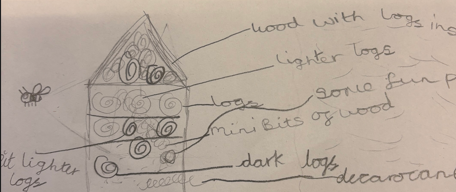 wood with logs ins
lighter logs
some fun p
logs
mini Bits of wood
it lighter
logs
dark logs